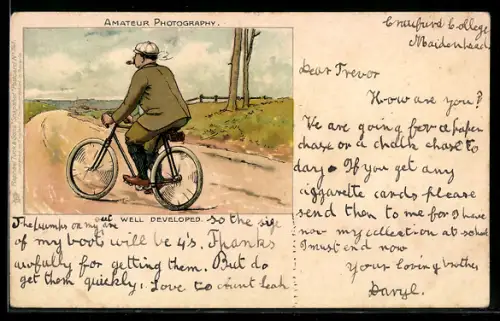 AMATEUR PHOTOGRAPHY.
WELL DEVELOPED.
Craufurd College
Maidenhead
Dear Trevor
How are you?
We are going for a paper
chase or a chalk chase to
day. If you get any
ciggarette cards please
send then to me for I have
now my cellection at school
I must end now
Your loving brother
Daryl.
The bumps on my are out so the size
of my boots will be 4's. Thanks
awfully for getting them. But do
get them quickly, Love to Aunt Leah